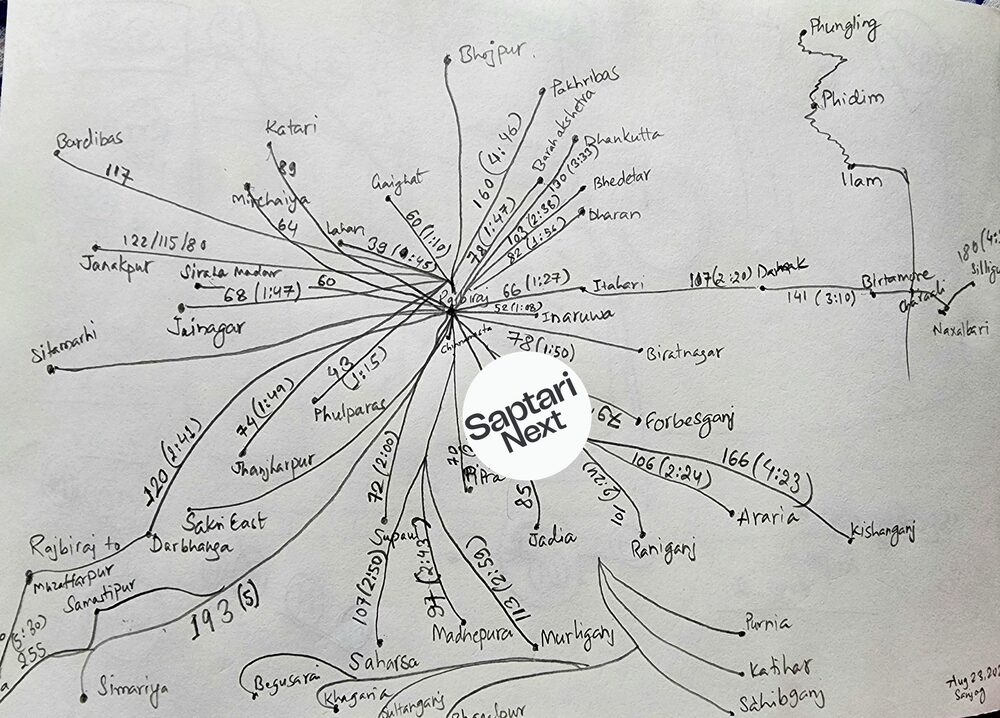 Phungling
Bhojpur
Pakhribas
Barahakshetra
Phidim
Dhankutta
Katari
Bardibas
89
160 (4:46)
130 (3:33)
117
Gaighat
Bhedetar
Ilam
Mirchaiya
60 (1:10)
78 (1:47)
103 (2:38)
Dharan
64
Lahan
39 (0:45)
82 (1:56)
122/115/80
Janakpur
Siraha Madar
60
66 (1:27)
Itahari
107 (2:20)
Damak
Birtamore
Charaali
180 (4:
Siliguri
68 (1:47)
Rajbiraj
52 (1:08)
Inaruwa
141 (3:10)
Jainagar
Naxalbari
Sitamarhi
Chinnamasta
78 (1:50)
Biratnagar
43
(1:15)
74 (1:49)
Phulparas
Saptari
Next
79
Forbesganj
120 (2:41)
Jhanjharpur
72 (2:00)
70
Pipra
85
101 (2:24)
106 (2:24)
166 (4:23)
Sakri East
Supaul
Jadia
Raniganj
Araria
Kishanganj
Rajbiraj to
Darbhanga
Muzaffarpur
Samastipur
193 (5)
107 (2:50)
97 (2:43)
113 (2:59)
(5:30)
255
Madhepura
Murliganj
Purnia
Simariya
Saharsa
Begusarai
Khagaria
Sultanganj
Bhagalpur
Katihar
Sahibganj
Aug 23, 202
Sanjog